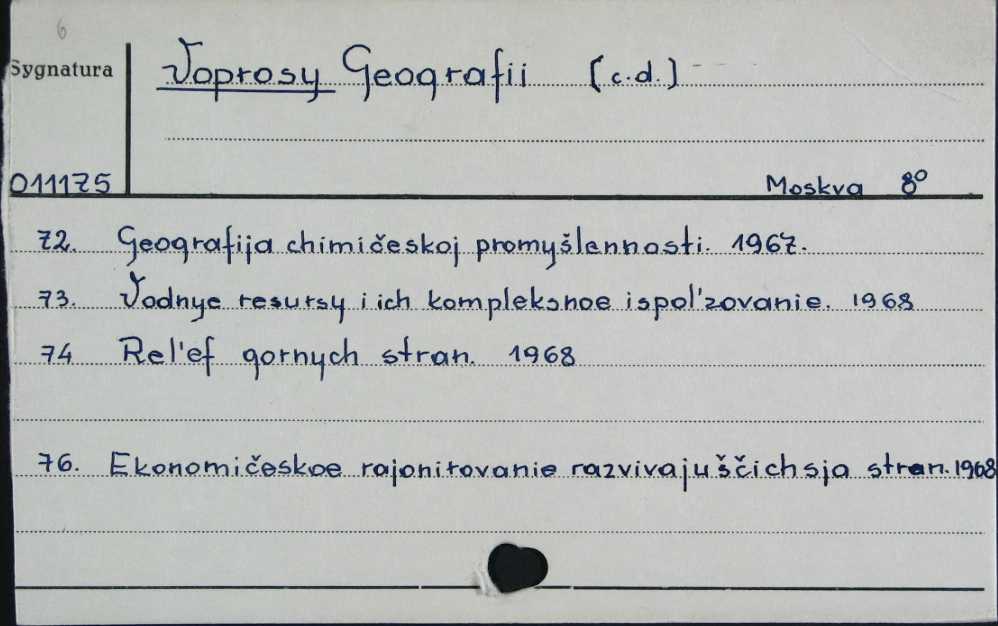 6
Sygnatura
Voprosy Geografii (c.d.)
011175
Moskva 8°
72. Geografija chimičeskoj promyšlennosti. 1967.
73. Vodnye resursy i ich kompleksnoe ispol'zovanie. 1968
74 Rel'ef gornych stran. 1968
76. Ekonomičeskoe rajonirovanie razvivajuščichsja stran. 1968